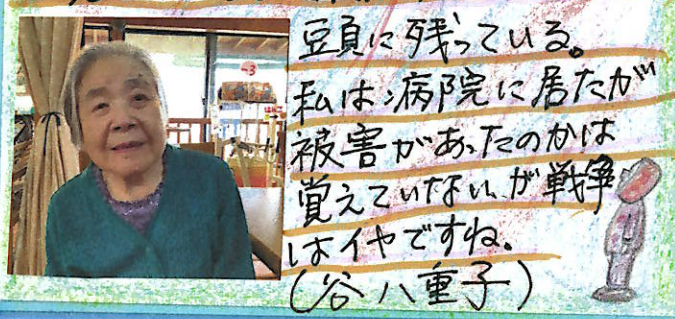 頭に残っている。
私は病院に居たが
被害があったのかは
覚えていないが戦争
はイヤですね。
(谷八重子)